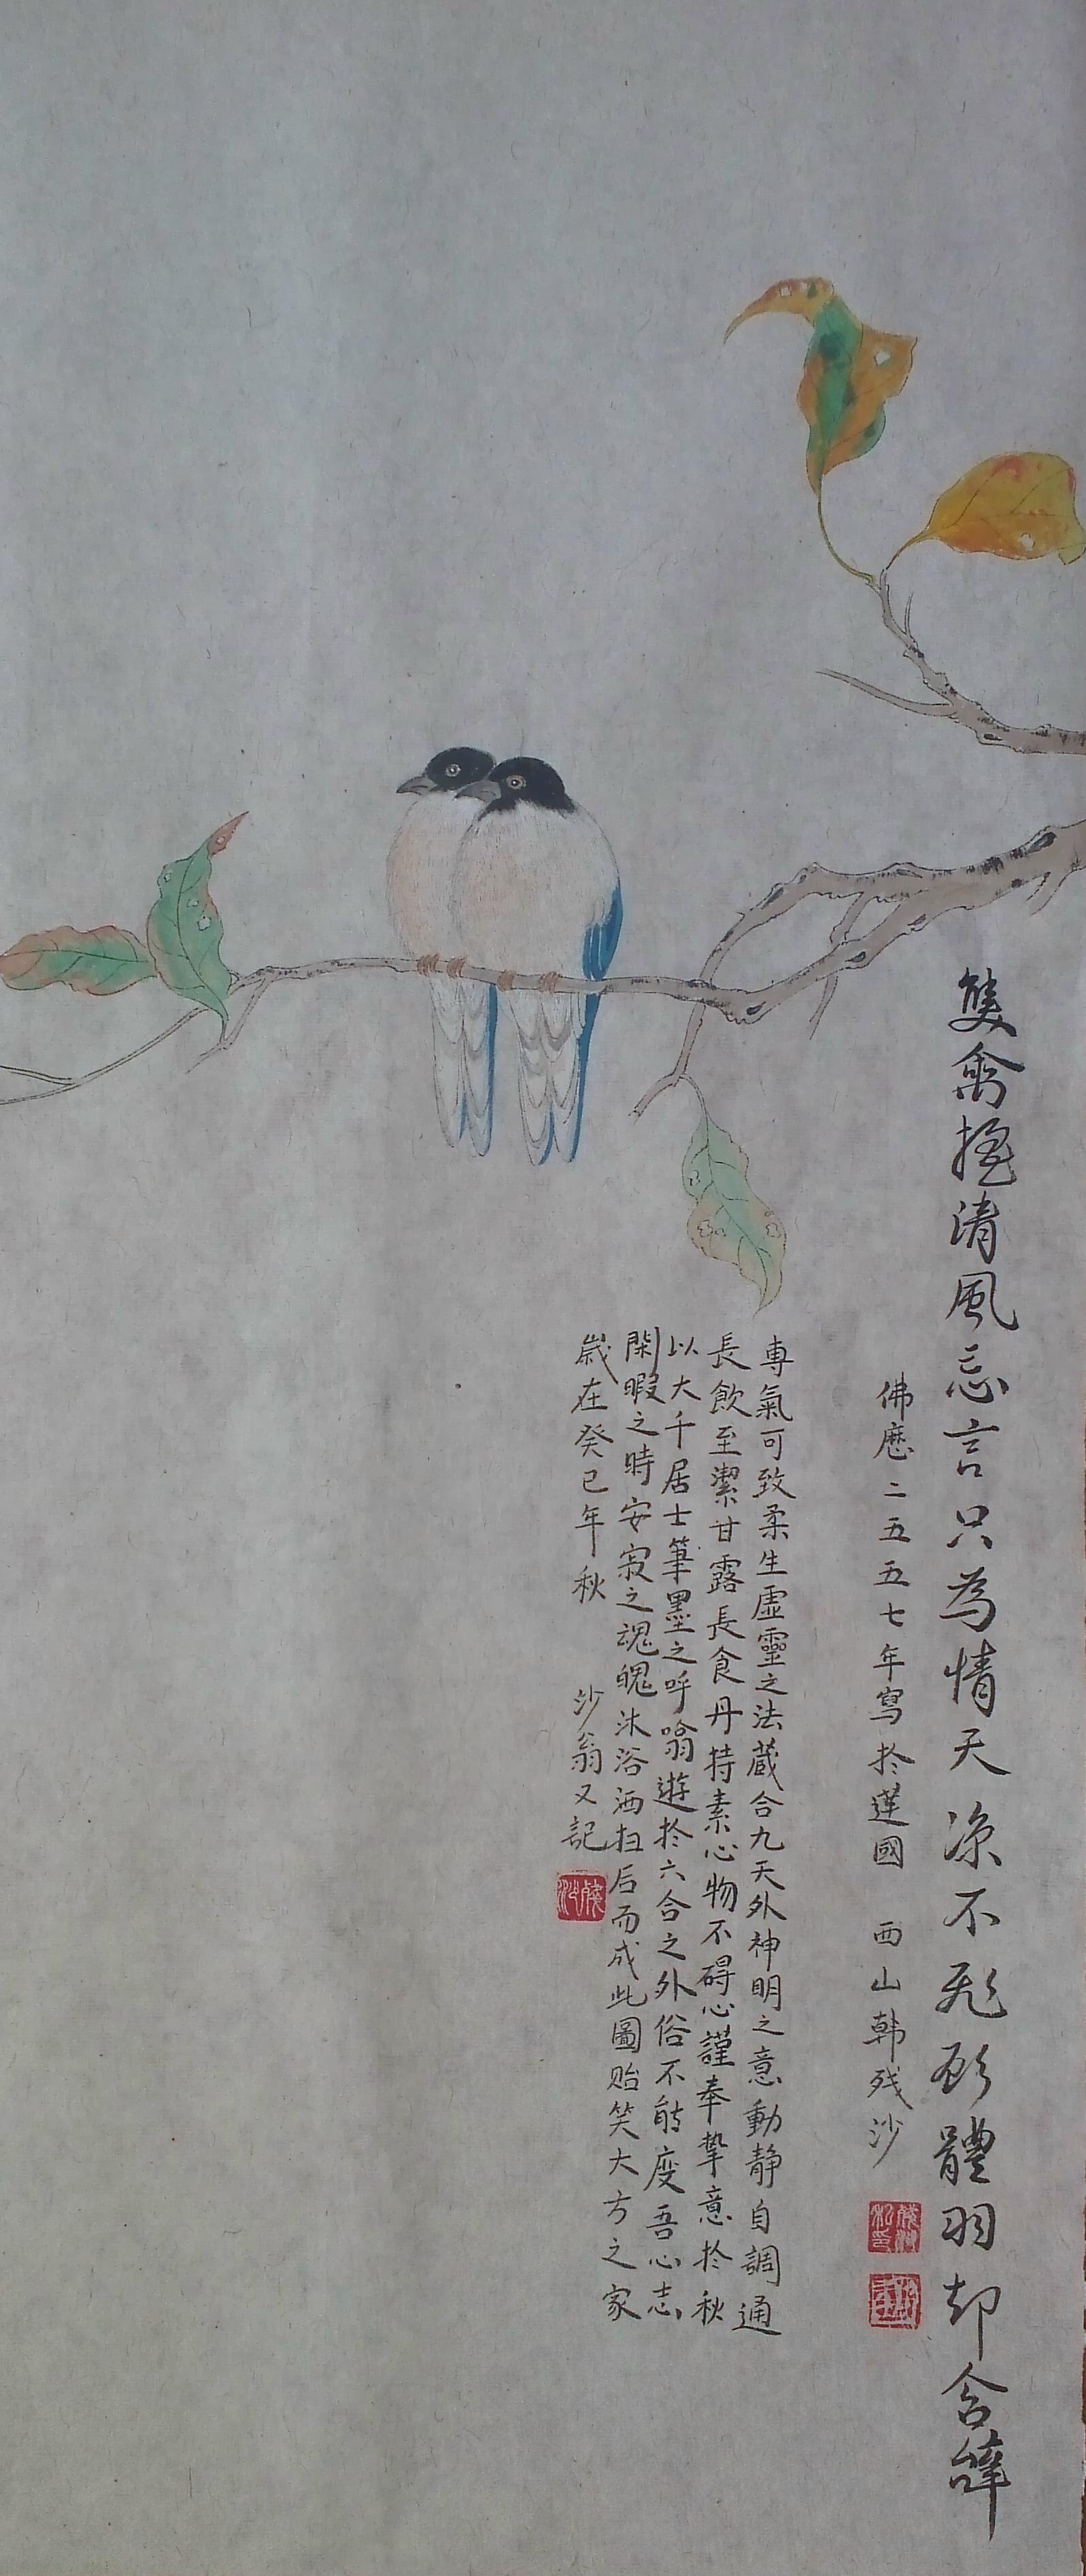 雙禽搖清風忘言只為情天涼不飛砍體羽却含皣
佛歷二五五七年寫於蓮國 西山韩残沙
専氣可致柔生虛靈之法蔵合九天外神明之意動静自調通
長飲至潔甘露長食丹持素心物不碍心謹奉挚意於秋
以大千居士筆墨之呼噏遊於六合之外俗不能度吾心志
閑暇之時安寂之魂魄沐浴洒扫后而成此圖贻笑大方之家
歲在癸巳年秋 沙翁又記